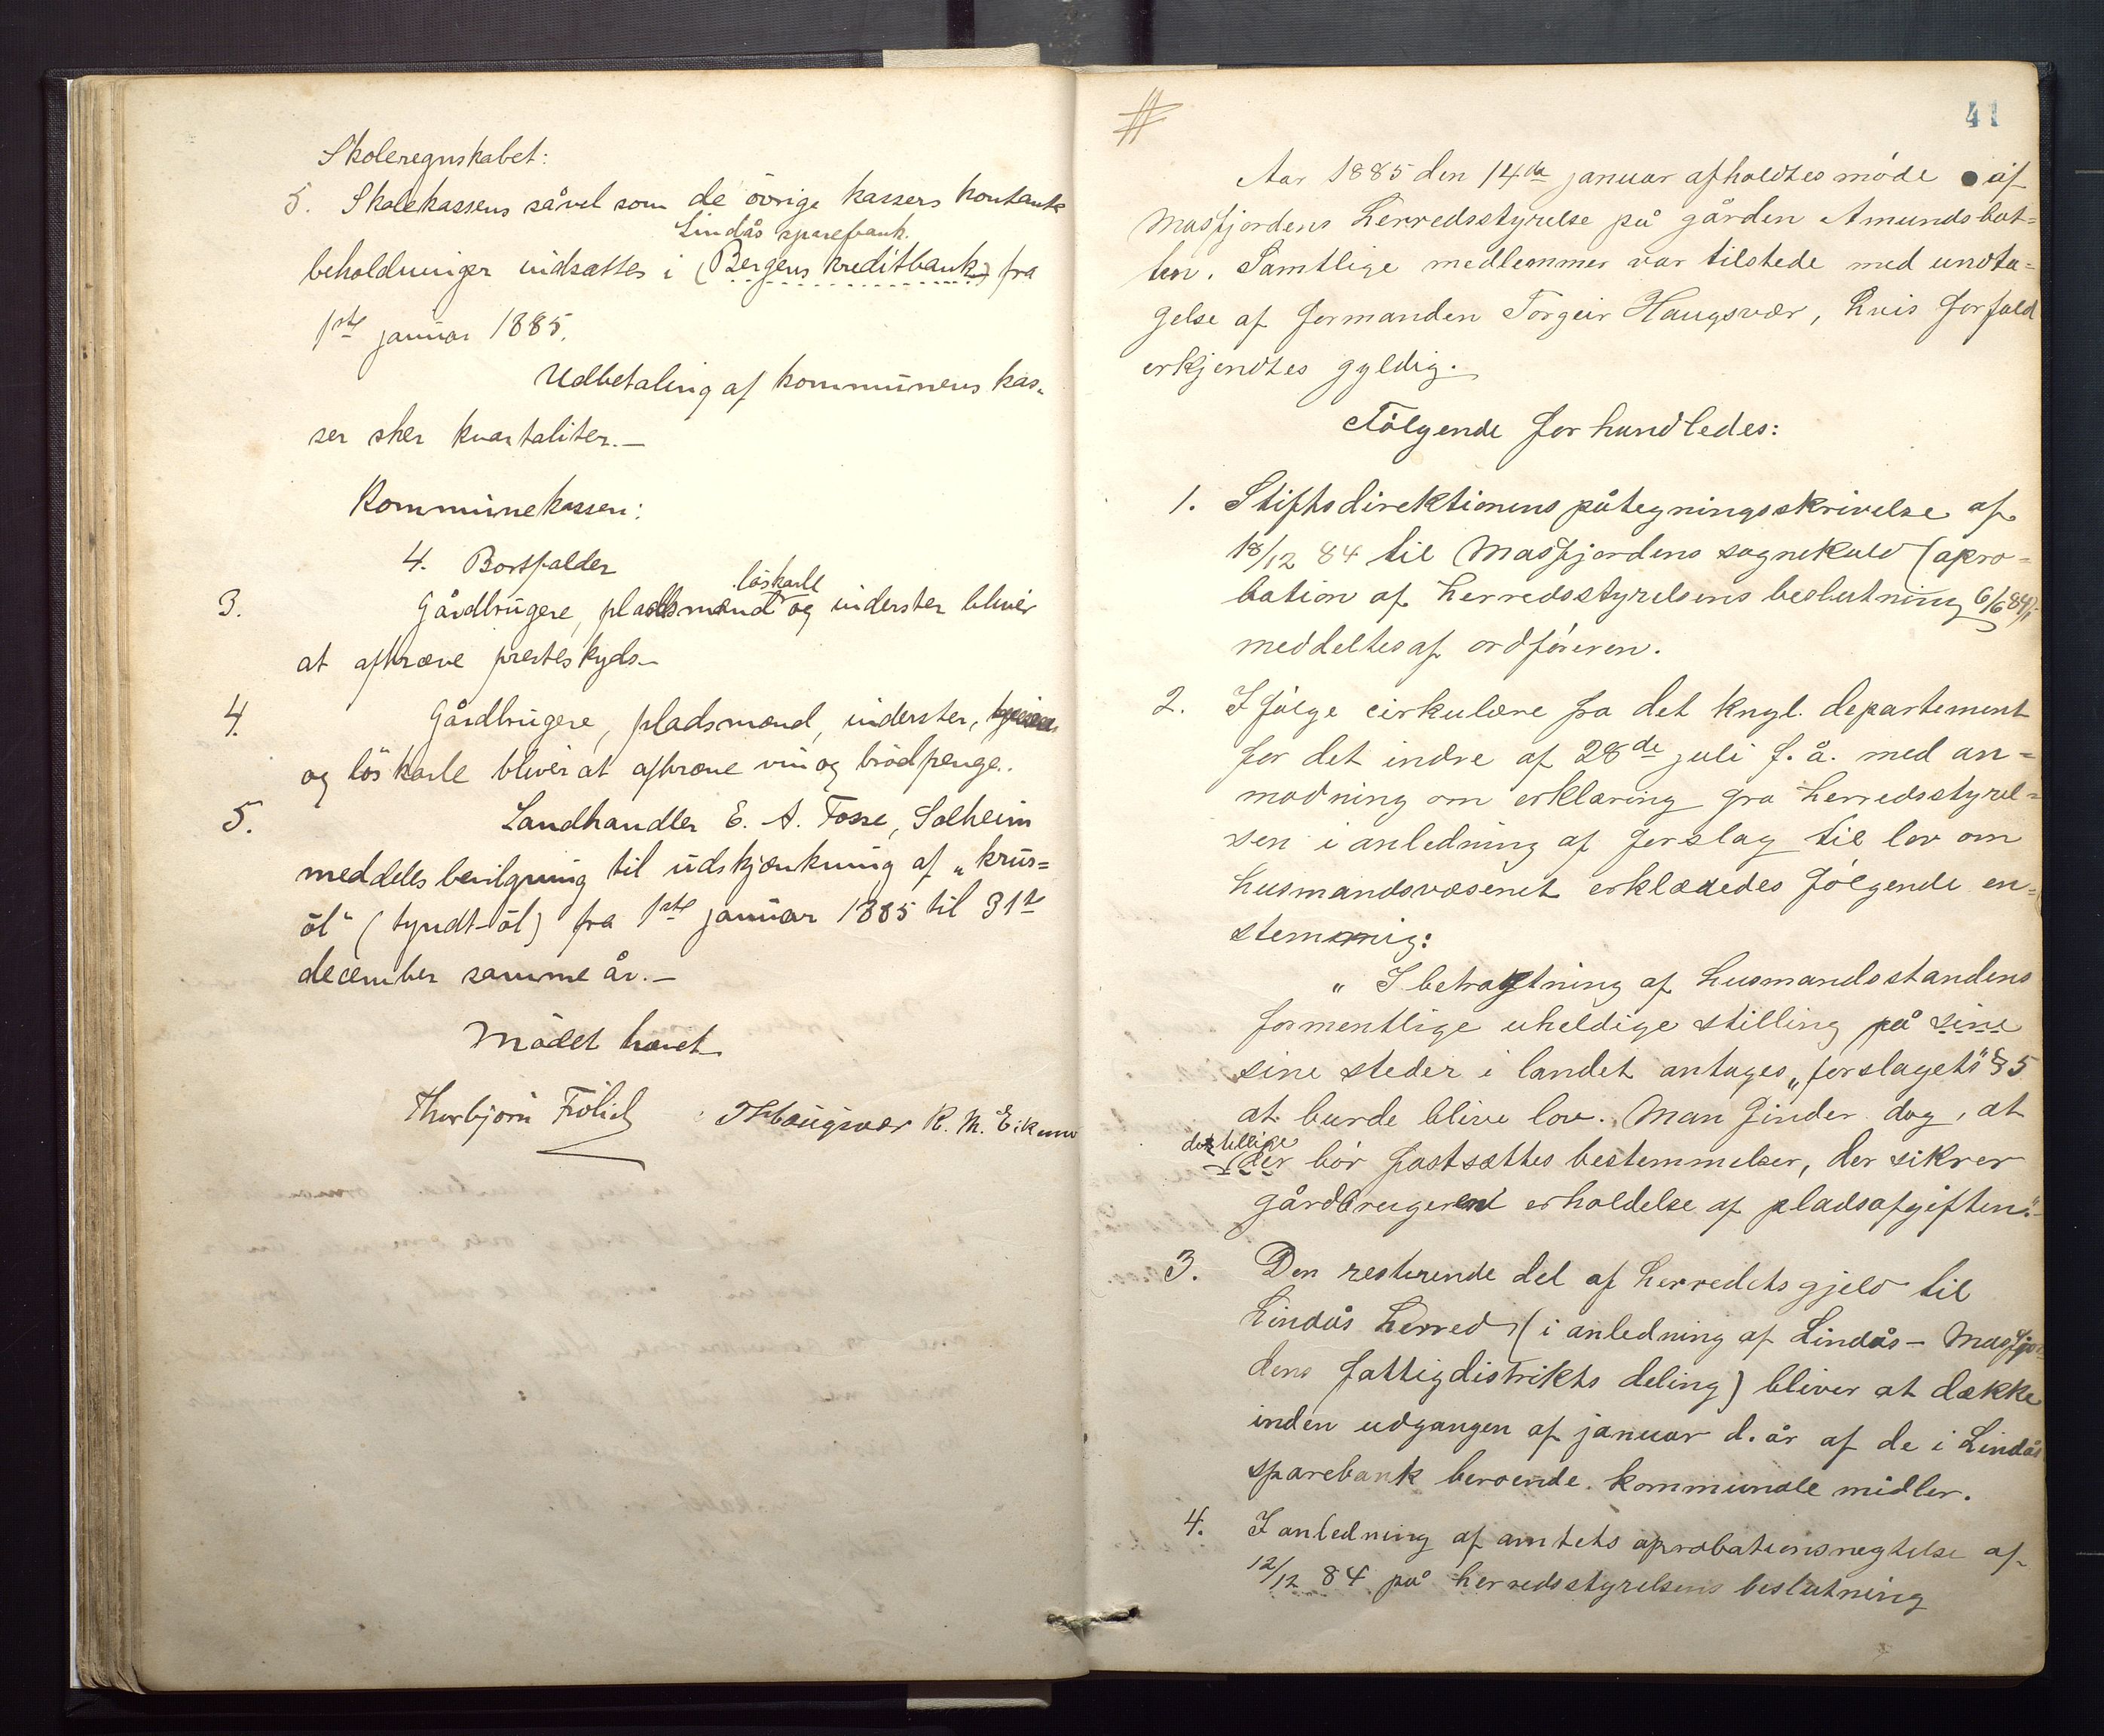 Skoleregnskabet:
5. Skolekassens såvel som de övrige kassers kontant
Lindås sparebank.
beholdninger indsættes i (Bergens kreditbank) fra
1ste januar 1885.
Udbetaling af kommunens kas-
ser sker kvartaliter.—
Kommunekassen:
4. Bortfalder
löskarle
3. Gårdbrugere, pladsmænd og inderster bliver
at afkræve presteskyds—
4. Gårdbrugere, pladsmænd, inderster,
og löskarle bliver at afkræve vin og brödpenge.
5. Landhandler E. A. Fosse, Solheim
meddeles bevilgning til udskjænkning af „krus=
öl“ (tyndt-öl) fra 1ste januar 1885 til 31te
december samme år.—
Mödet hævet.
Thorbjørn Frölich THaugsvær R. M. Eikemo
#
41
Aar 1885 den 14de januar afholdtes møde af
Masfjordens herredsstyrelse på gården Amundsbot=
ten. Samtlige medlemmer var tilstede med undta=
gelse af formanden Torgeir Haugsvær, hvis forfald
erkjendtes gyldig.
Følgende forhandledes:
1. Stiftsdirektionens påtegningsskrivelse af
18/12 84 til Masfjordens sognekald (apro=
bation af herredsstyrelsens beslutning 6/6 84)
meddeltes af ordføreren.
2. I følge cirkulære fra det kngl. departement
for det indre af 28de juli f. å. med an=
modning om erklæring fra herredsstyrel=
sen i anledning af forslag til lov om
husmandsvæsenet erklæredes følgende en=
stemmig:
„ I betragtning af husmandsstandens
formentlige uheldige stilling på sine
sine steder i landet antages „forslagets“ § 5
at burde blive lov. Man finder dog, at
det tillige
der bör fastsættes bestemmelser, der sikrer
gårdbrugeren erholdelse af pladsafgiften.“
3. Den resterende del af herredets gjeld til
Lindås herred (i anledning af Lindås – Masfjor=
dens fattigdistrikts deling) bliver at dække
inden udgangen af januar d. år af de i Lindås
sparebank beroende kommunale midler.
4. I anledning af amtets aprobationsnegtelse af
12/12 84 på herredsstyrelsens beslutning